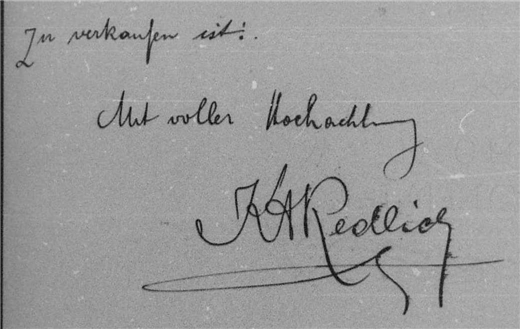 Zu verkaufen ist!.
Mit voller Hochachtung
KA Redlich